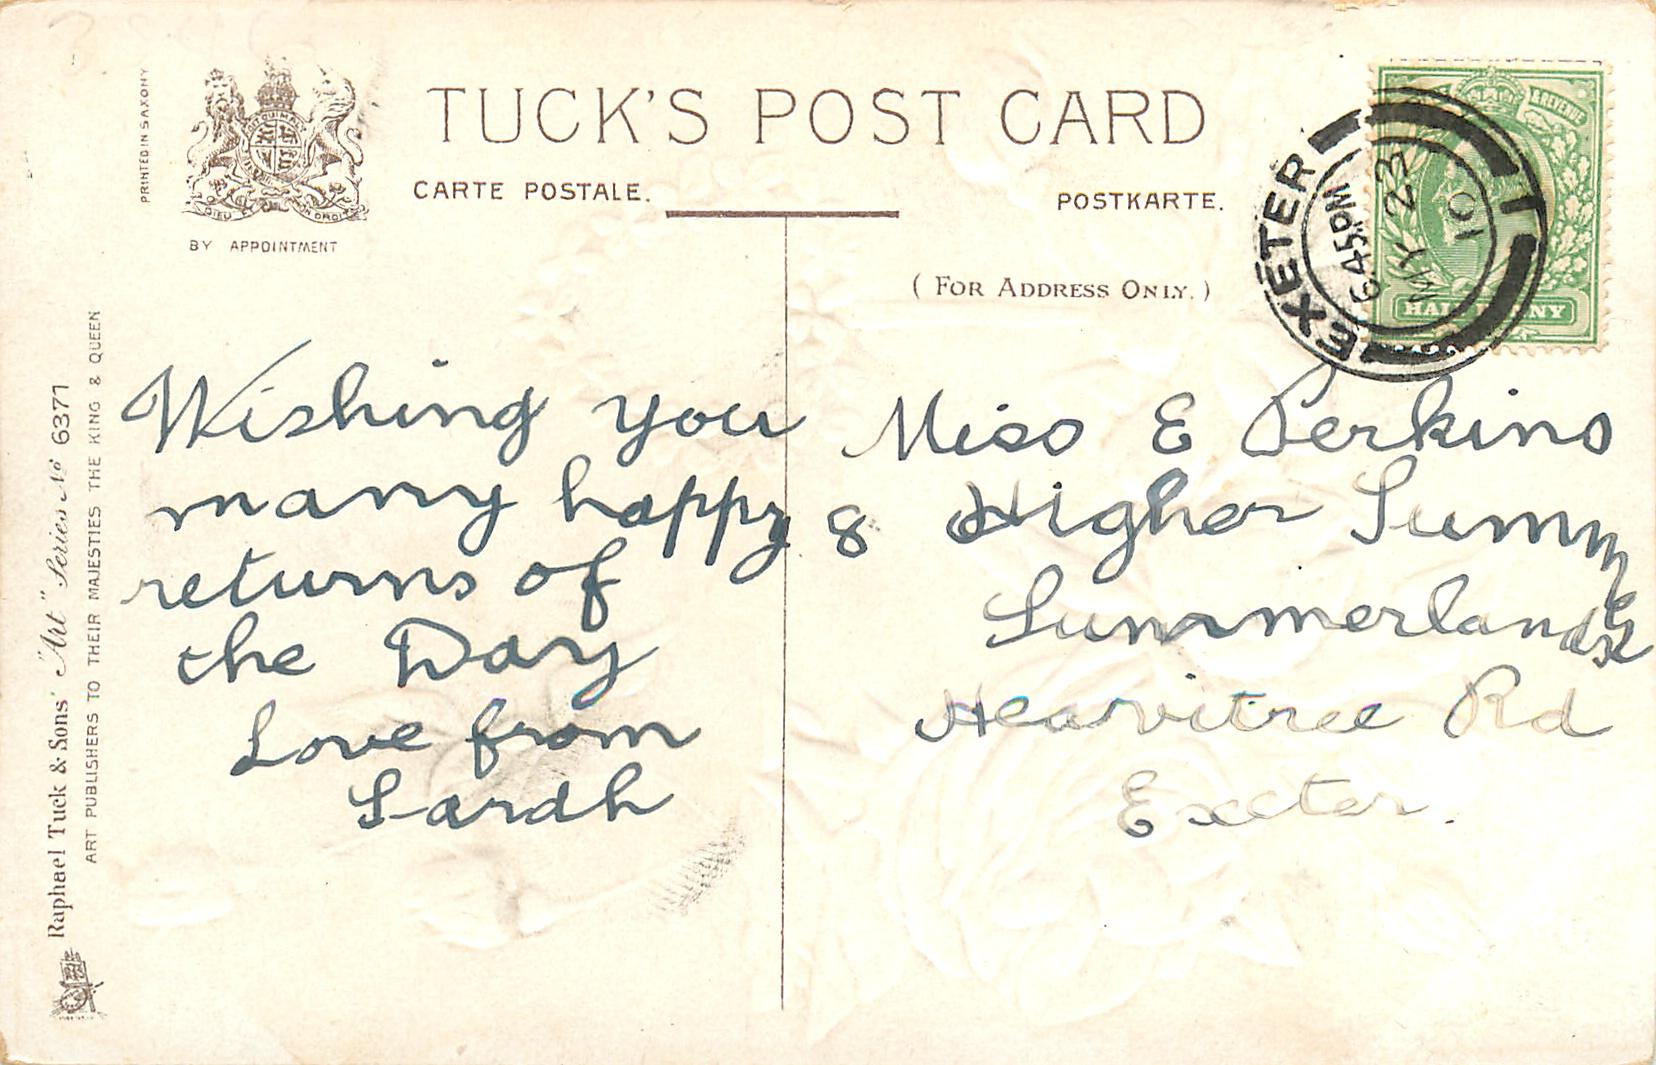 TUCK'S POST CARD
CARTE POSTALE.
POSTKARTE.
PRINTED IN SAXONY
DIEU ET MON DROIT
BY APPOINTMENT
( FOR ADDRESS ONLY. )
EXETER
6.45PM
MY 23
10
1
& REVENUE
HALFPENNY
Wishing you
many happy
returns of
the Day
Love from
Sarah
Miss E Perkins
8 Higher Summ
Summerlands
Heavitree Rd
Exeter.
Raphael Tuck & Sons' "Art" Series No 6377
ART PUBLISHERS TO THEIR MAJESTIES THE KING & QUEEN